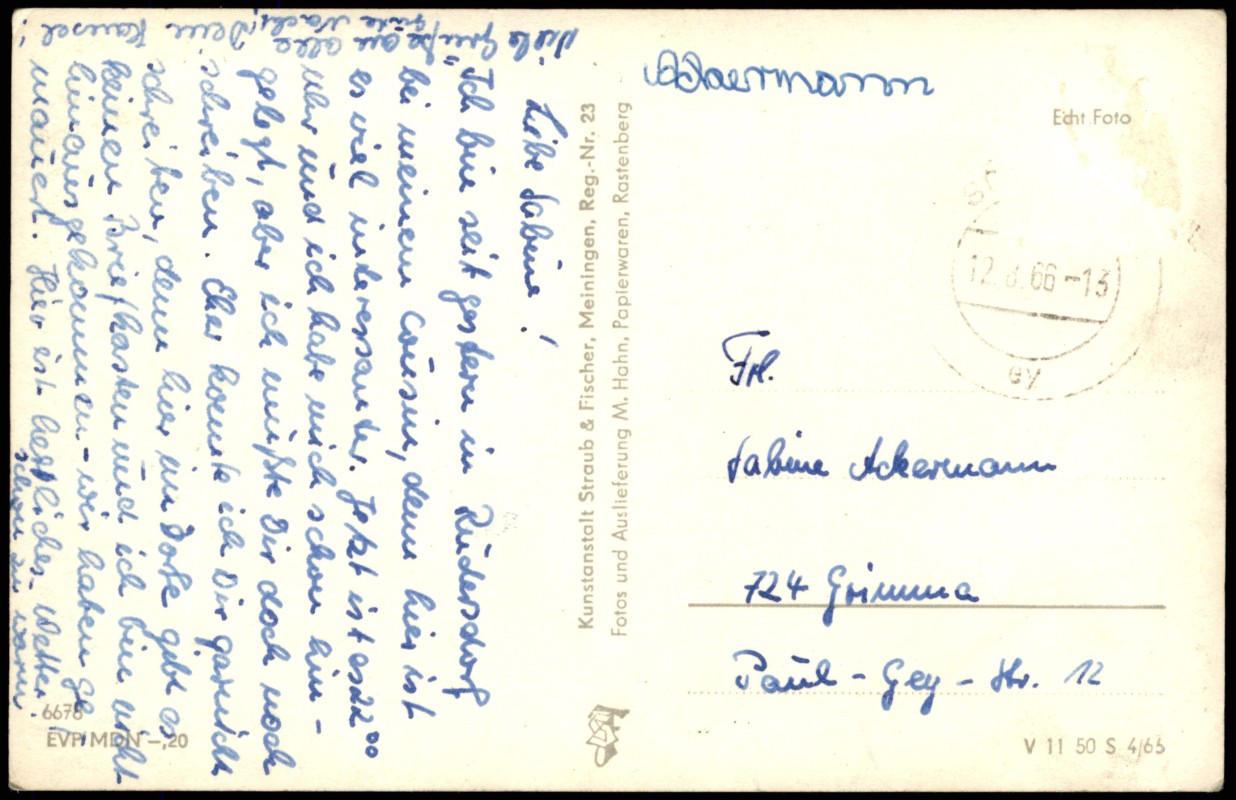 Liebe Sabine!
Ich bin seit gestern in Rüdersdorf
bei meinem Cousin, denn hier ist
es viel interesanter. Jetzt ist es 22⁰⁰
Uhr und ich habe mich schon hin-
gelegt, aber ich mußte Dir doch noch
schreiben. Eher konnte ich Dir garnicht
schreiben, denn hier im Dorfe gibt es
keinen Briefkasten und ich bin nicht
hinausgekommen - wir haben ge-
mauert. Hier ist herrliches Wetter
schon zu warm.
Viele Grüße an alle
Gute Nacht, Dein Hansel!
Kunstanstalt Straub & Fischer, Meiningen, Reg.-Nr. 23
Fotos und Auslieferung M. Hahn, Papierwaren, Rastenberg
6678
EVP MDN -,20
Ackermann
Echt Foto
12. 66-13
ey
Frl.
Sabine Ackermann
724 Grimma
Paul-Gey-Str. 12
V 11 50 S 4/65